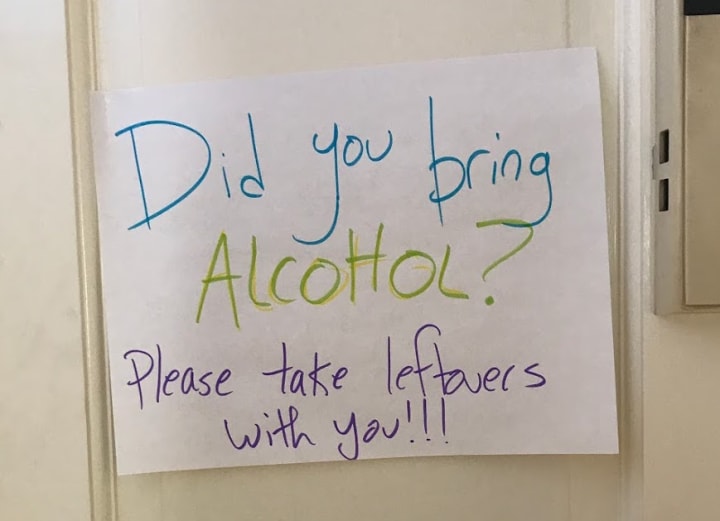 Did you bring
ALCOHOL?
Please take leftovers
with you!!!